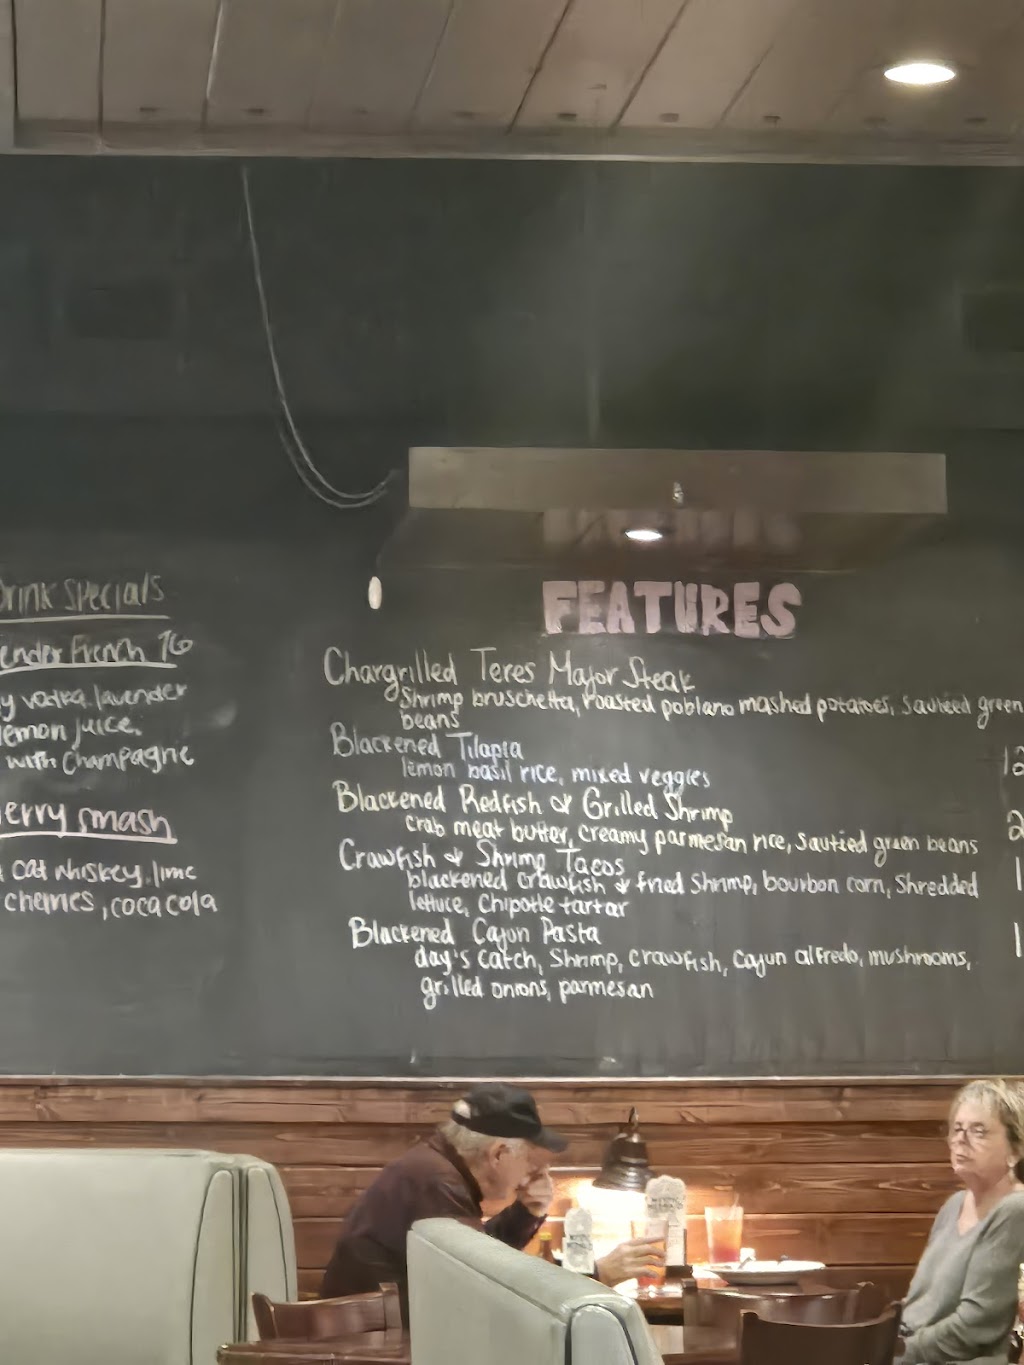 Drink Specials
ender French 76
y vodka, lavender
lemon juice.
with Champagne
erry smash
cat whiskey, lime
cherries, coca cola
FEATURES
Chargrilled Teres Major Steak
Shrimp bruschetta, roasted poblano mashed potatoes, sautéed green
beans
Blackened Tilapia
lemon basil rice, mixed veggies
Blackened Redfish & Grilled Shrimp
crab meat butter, creamy parmesan rice, sautéed green beans
Crawfish & Shrimp Tacos
blackened crawfish & fried Shrimp, bourbon corn, Shredded
lettuce, Chipotle tartar
Blackened Cajun Pasta
day's catch, Shrimp, crawfish, cajun alfredo, mushrooms,
grilled onions, parmesan